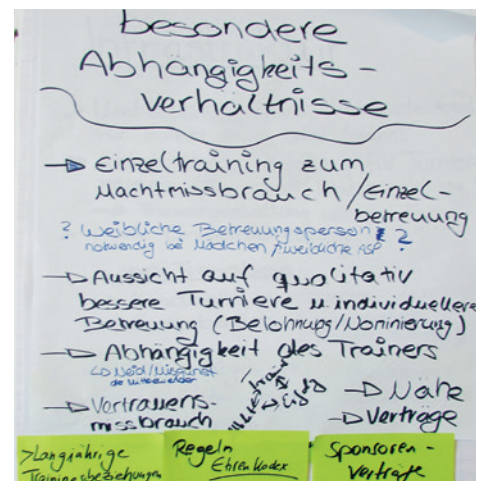 besondere
Abhängigkeits-
verhältnisse
Einzeltraining zum
Machtmissbrauch / Einzel-
betreuung
? Weibliche Betreuungsperson ?
notwendig bei Mädchen / weibliche ASP
Aussicht auf qualitativ
bessere Turniere u. individuellere
Betreuung (Belohnung/Nominierung)
Abhängigkeit des Trainers
Neid/Missgunst
Vertrauens-
missbrauch
Nähe
Verträge
>Langjährige
Trainingsbeziehungen
Regeln
Ehrenkodex
Sponsoren-
verträge